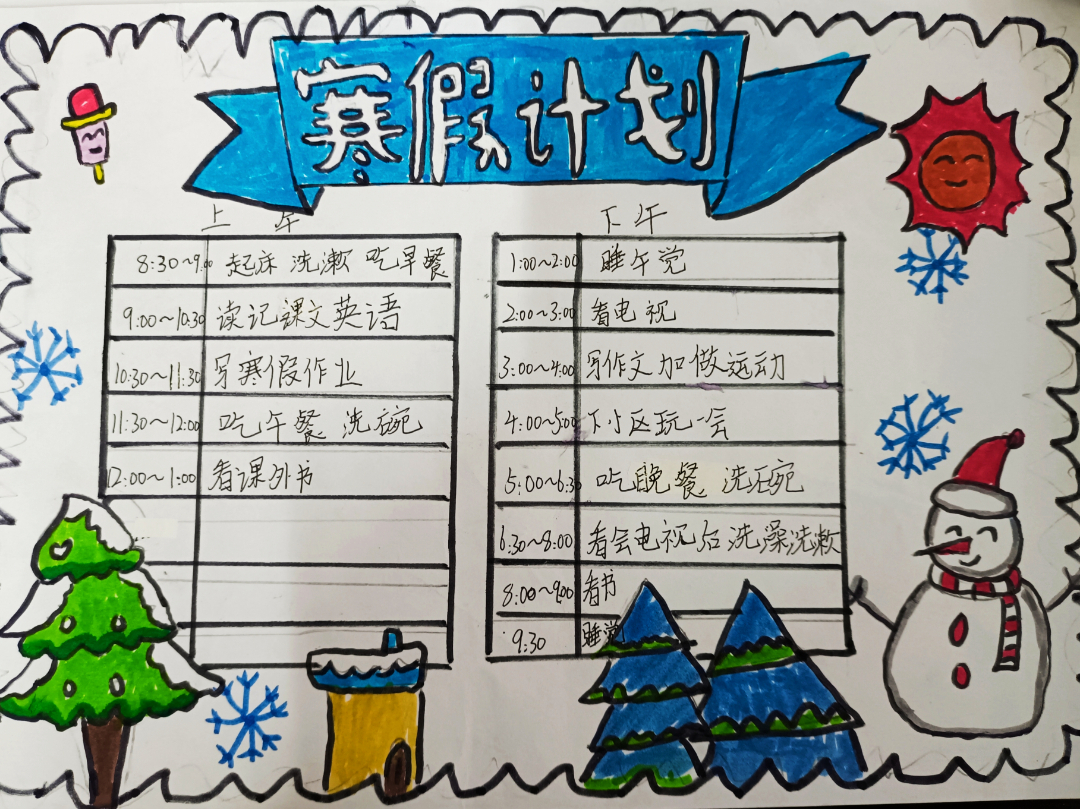 寒假计划
上午
8:30~9:00 起床 洗漱 吃早餐
9:00~10:30 读记课文英语
10:30~11:30 写寒假作业
11:30~12:00 吃午餐 洗碗
12:00~1:00 看课外书
下午
1:00~2:00 睡午觉
2:00~3:00 看电视
3:00~4:00 写作文加做运动
4:00~5:00 下小区玩一会
5:00~6:30 吃晚餐 洗碗
6:30~8:00 看会电视后洗澡洗漱
8:00~9:00 看书
9:30 睡觉